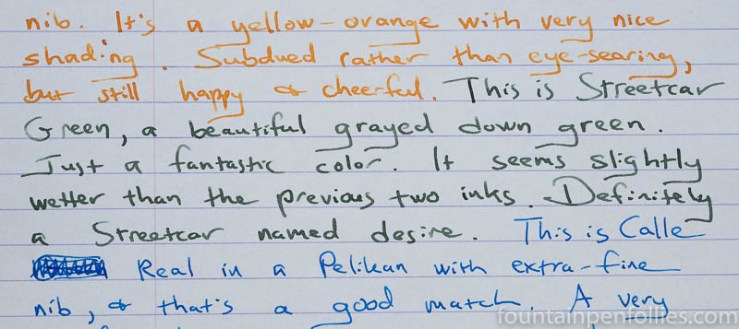 nib. It's a yellow-orange with very nice
shading. Subdued rather than eye-searing,
but still happy & cheerful. This is Streetcar
Green, a beautiful grayed down green.
Just a fantastic color. It seems slightly
wetter than the previous two inks. Definitely
a Streetcar named desire. This is Calle
Real in a Pelikan with extra-fine
nib, & that's a good match. A very
fountainpenfollies.com